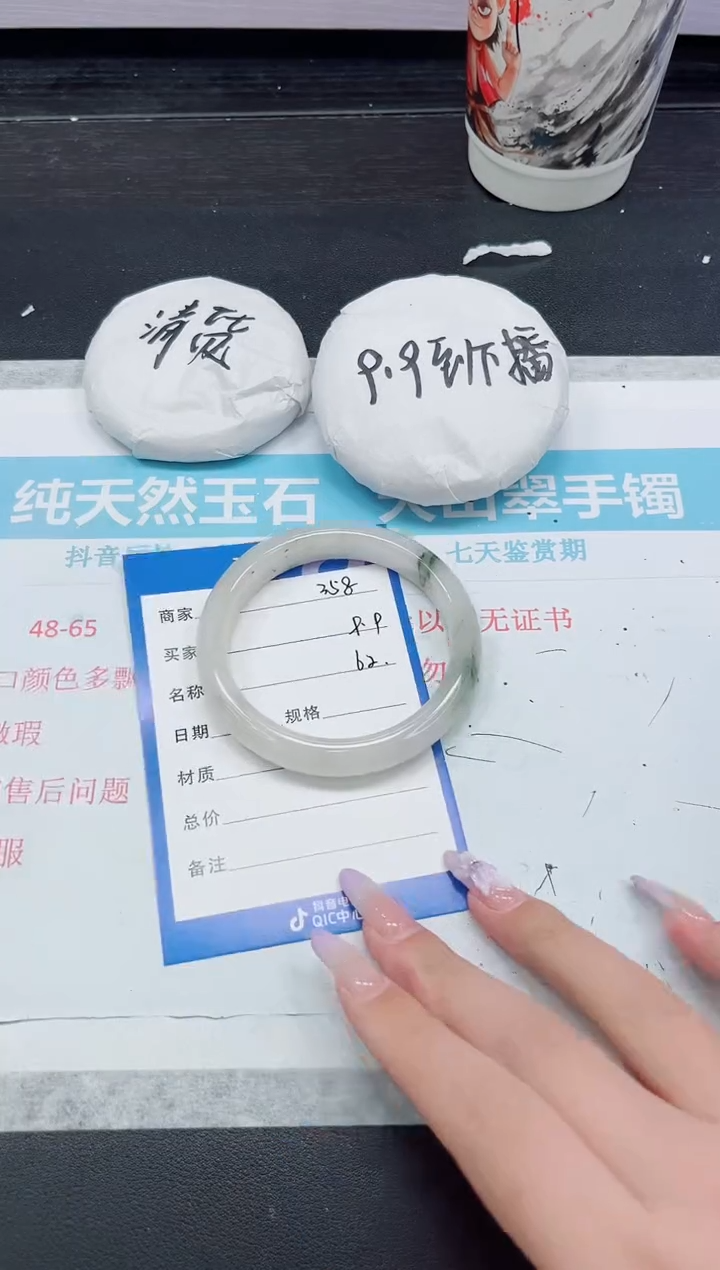 清货
9.9到下播
纯天然玉石 天山翠手镯
抖音 七天鉴赏期
48-65
以 无证书
口颜色多飘
勿
微瑕
售后问题
服
商家 358
买家 9.9
名称 62.
日期 规格
材质
总价
备注
抖音电
QIC中心